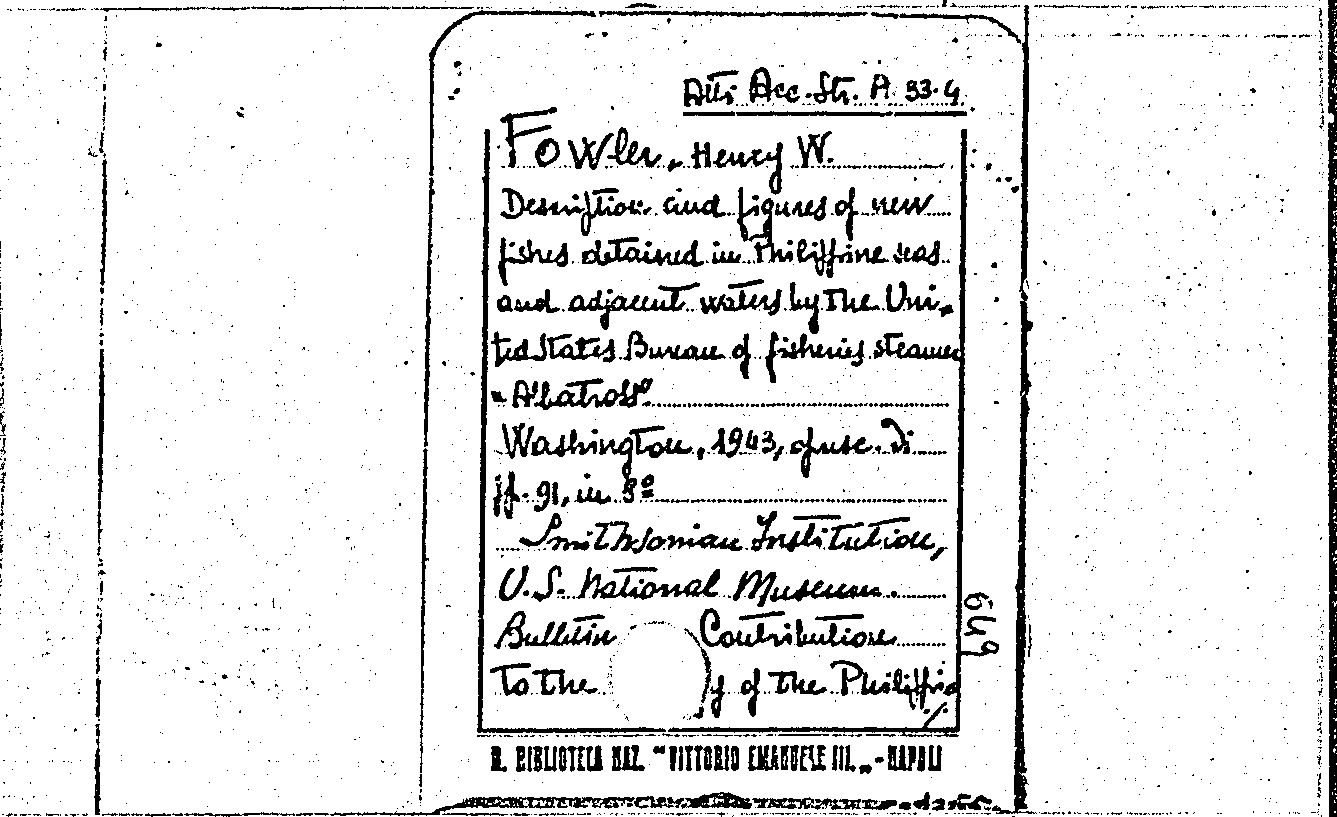 Atti Acc. Str. A 33.4
Fowler, Henry W.
Description and figures of new
fishes detained in Philippine seas
and adjacent waters by the Uni-
ted States Bureau of fisheries steamer
"Albatross".
Washington, 1943, opusc. di
pp. 91, in 8º
Smithsonian Institution,
U.S. National Museum.
Bulletin Contribution
to the y of the Philippin
./.
649
R. BIBLIOTECA NAZ. "VITTORIO EMANUELE III." - NAPOLI